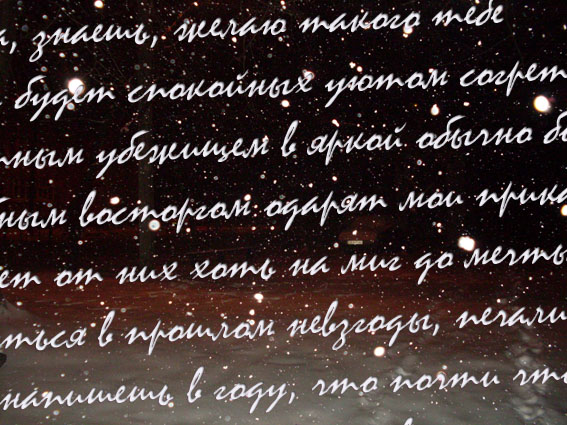 а, знаешь, желаю такого тебе
будет спокойных уютом согрет
ным убежищем в яркой обычно б
ным восторгом одарят мои прика
ет от них хоть на миг до мечты
ться в прошлом невзгоды, печали
напишешь в году, что почти что